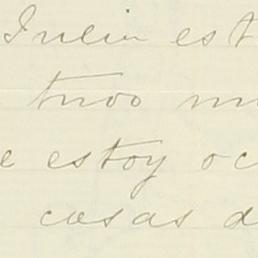 Julia est
tuvo m
e estoy oc
casas d